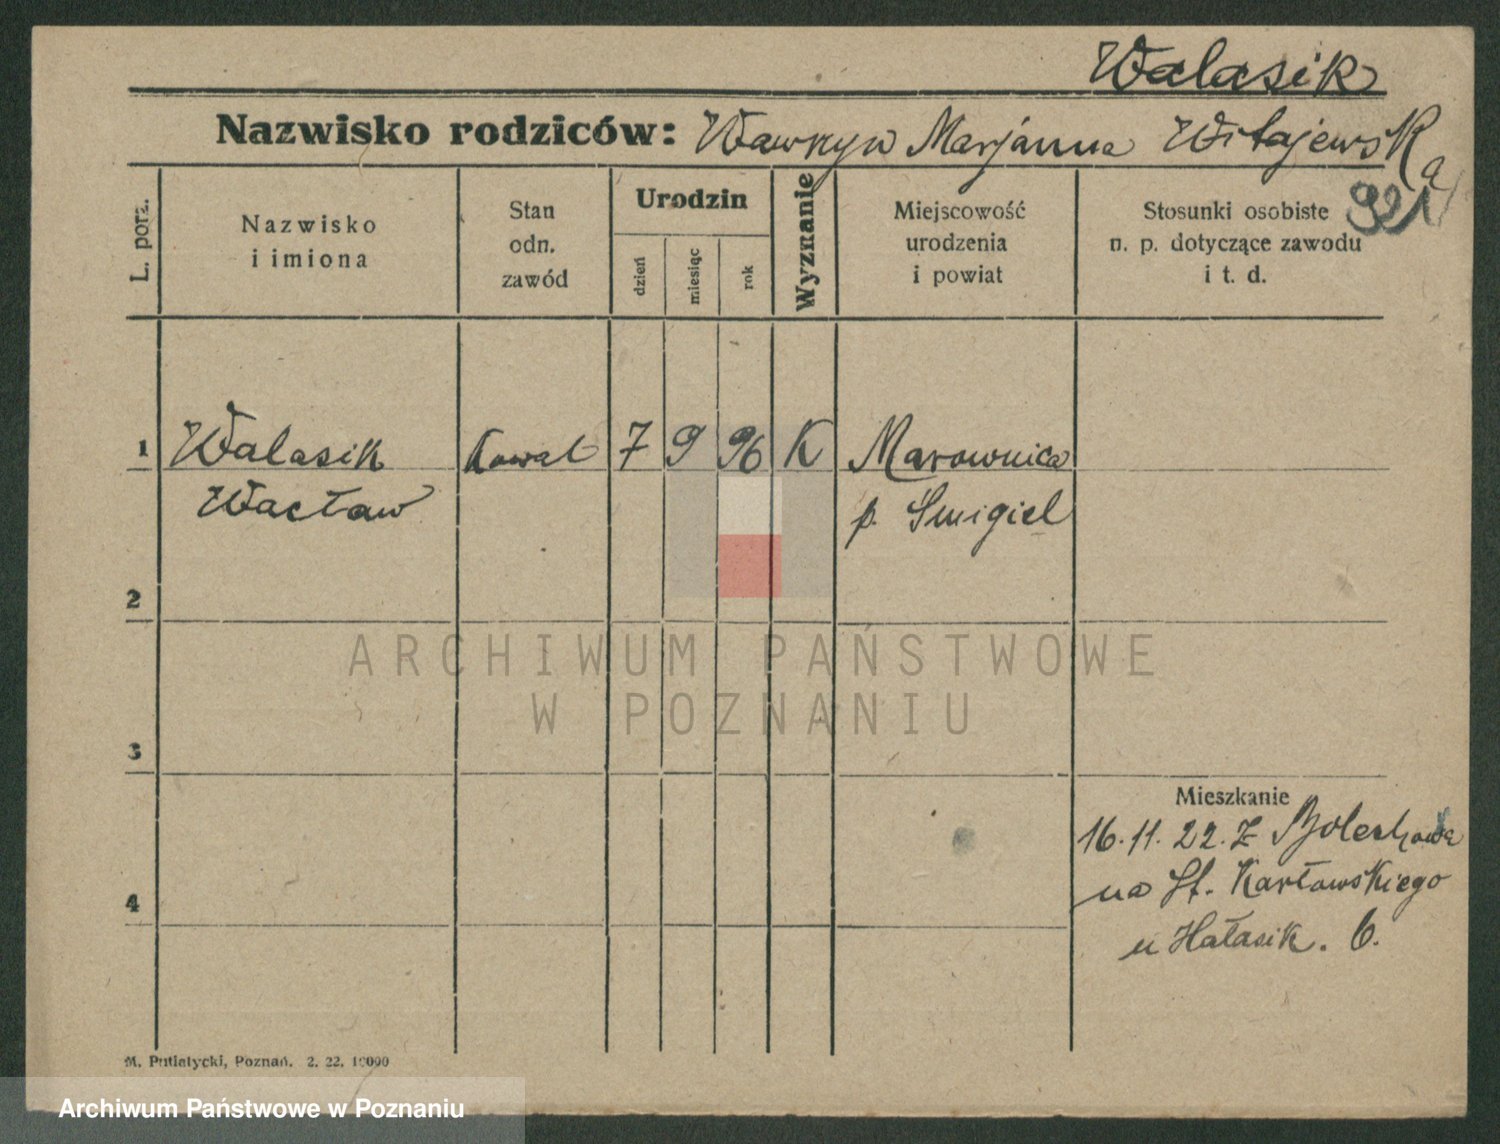 Walasik
Nazwisko rodziców: Wawrzyn Marjanna Witajewska
921
L. porz.
Nazwisko
i imiona
Stan
odn.
zawód
Urodzin
dzień
miesiąc
rok
Wyznanie
Miejscowość
urodzenia
i powiat
Stosunki osobiste
n. p. dotyczące zawodu
i t. d.
1 Walasik Kowal 7 9 96 K Marownica
Wacław p. Śmigiel
2
3
Mieszkanie
16.11.22. z Bolechowa
4 na Sf. Karłowskiego
u Hałasik. 6.
M. Putiatycki, Poznań. 2. 22. 10000
ARCHIWUM PAŃSTWOWE
W POZNANIU
Archiwum Państwowe w Poznaniu